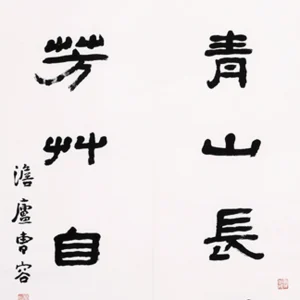 青山長
芳艸自
澹廬曹容